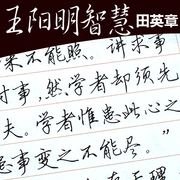 王阳明智慧
田英章
来不能照。讲求事
时事,然学者却须先
夫。学者惟患此心之
患事变之不能尽。”